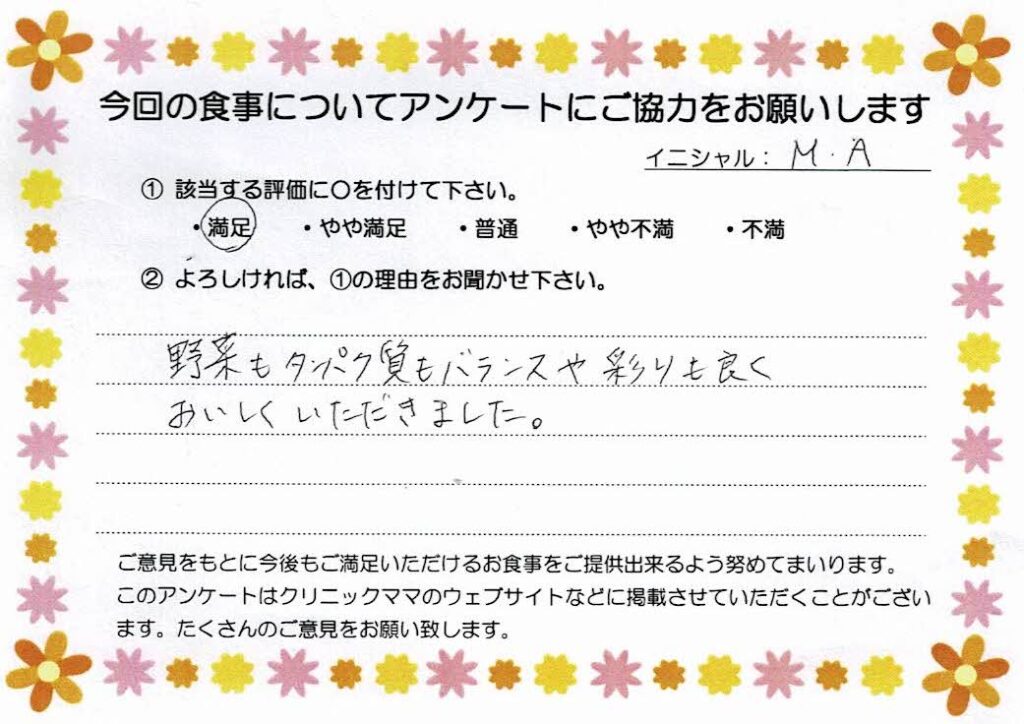 今回の食事についてアンケートにご協力をお願いします
イニシャル： M.A
① 該当する評価に〇を付けて下さい。
・満足 ・やや満足 ・普通 ・やや不満 ・不満
② よろしければ、①の理由をお聞かせ下さい。
野菜もタンパク質もバランスや彩りも良く
おいしくいただきました。
ご意見をもとに今後もご満足いただけるお食事をご提供出来るよう努めてまいります。
このアンケートはクリニックママのウェブサイトなどに掲載させていただくことがござい
ます。たくさんのご意見をお願い致します。